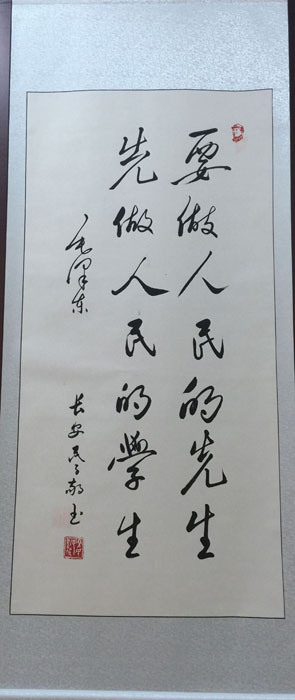 要做人民的先生
先做人民的學生
毛澤东
长安